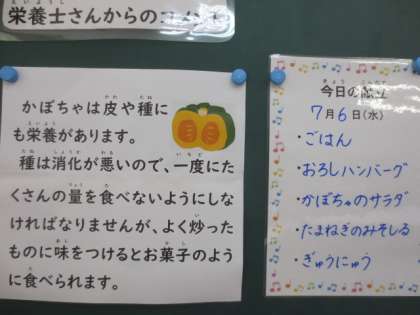 栄養士さんからのコメント
かぼちゃは皮や種に
も栄養があります。
種は消化が悪いので、一度にた
くさんの量を食べないようにしな
ければなりませんが、よく炒った
ものに味をつけるとお菓子のよう
に食べられます。
今日の献立
7月6日(水)
・ごはん
・おろしハンバーグ
・かぼちゃのサラダ
・たまねぎのみそしる
・ぎゅうにゅう